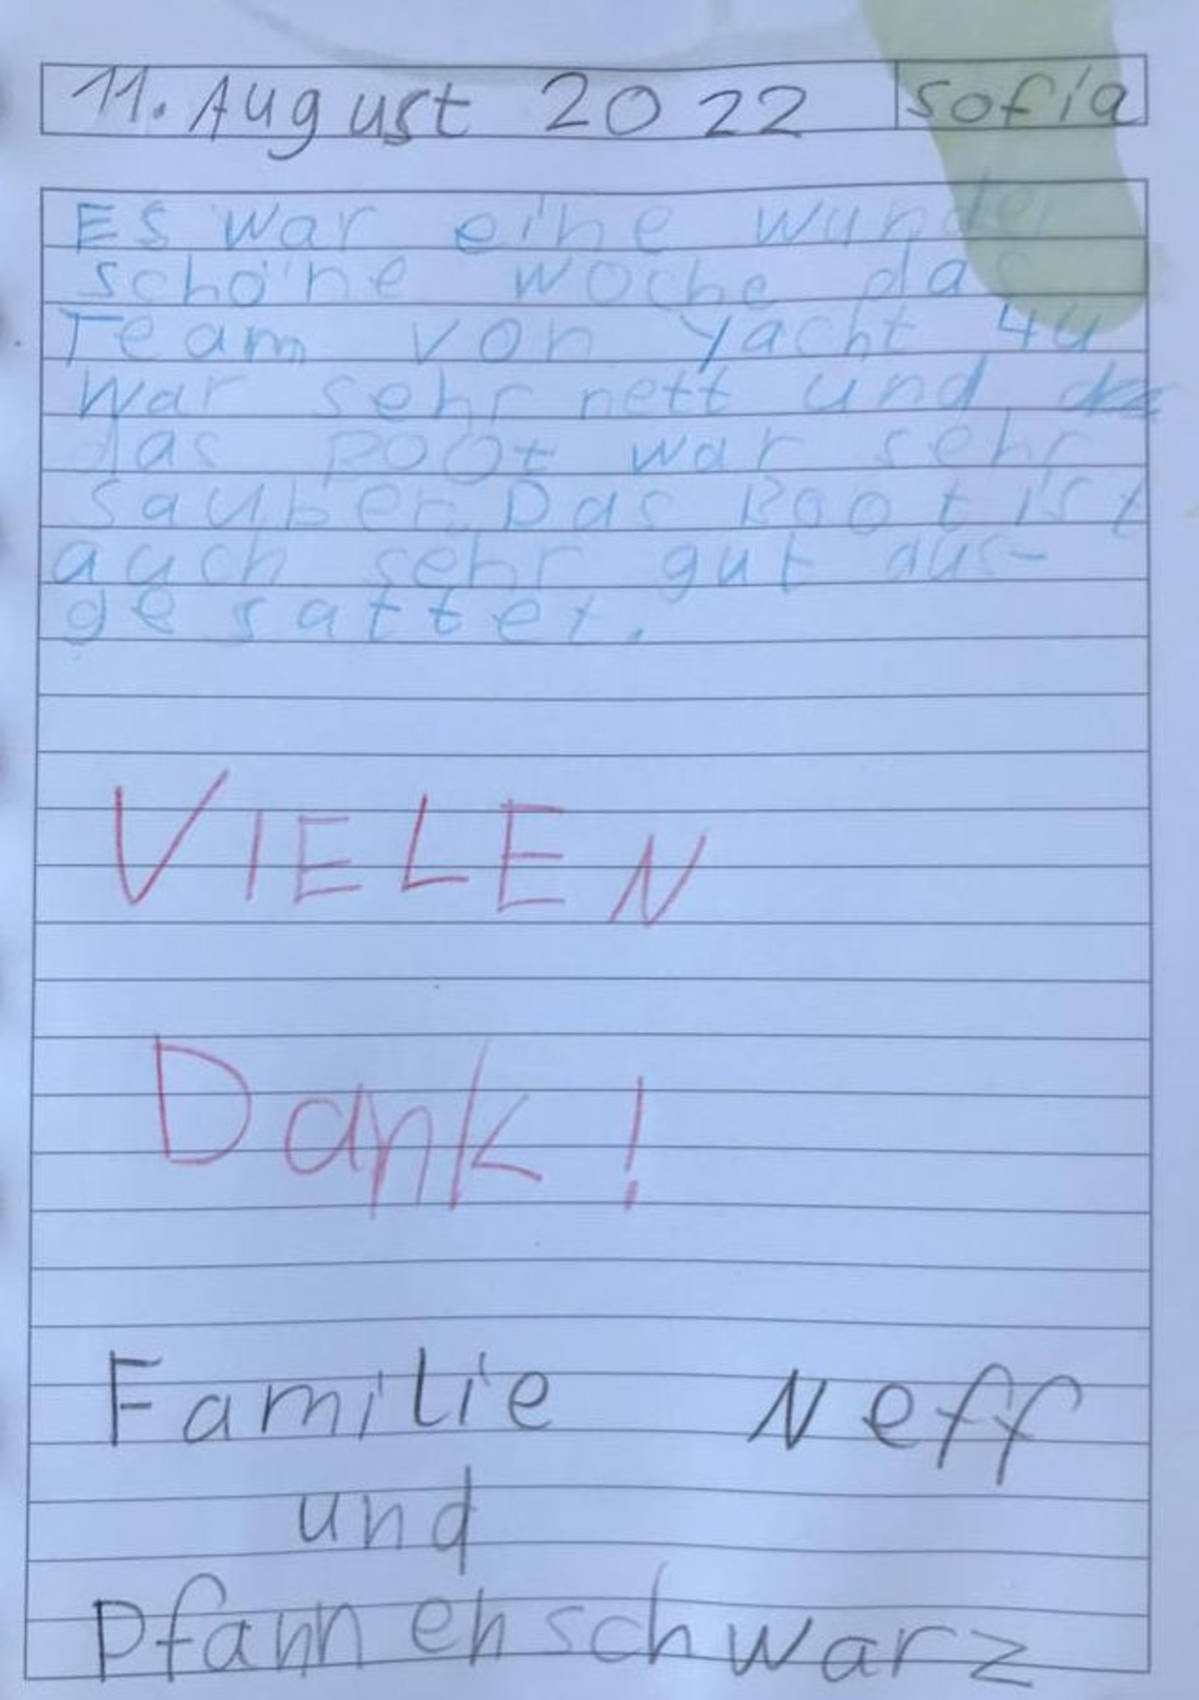 11. August 2022 Sofia
Es war eine wunder
schöne woche das
Team von Yacht 4u
war sehr nett und
das Poot war sehr
sauber. Das Boot ist
auch sehr gut aus-
gesattet.
VIELEN
Dank!
Familie Neff
und
Pfannenschwarz